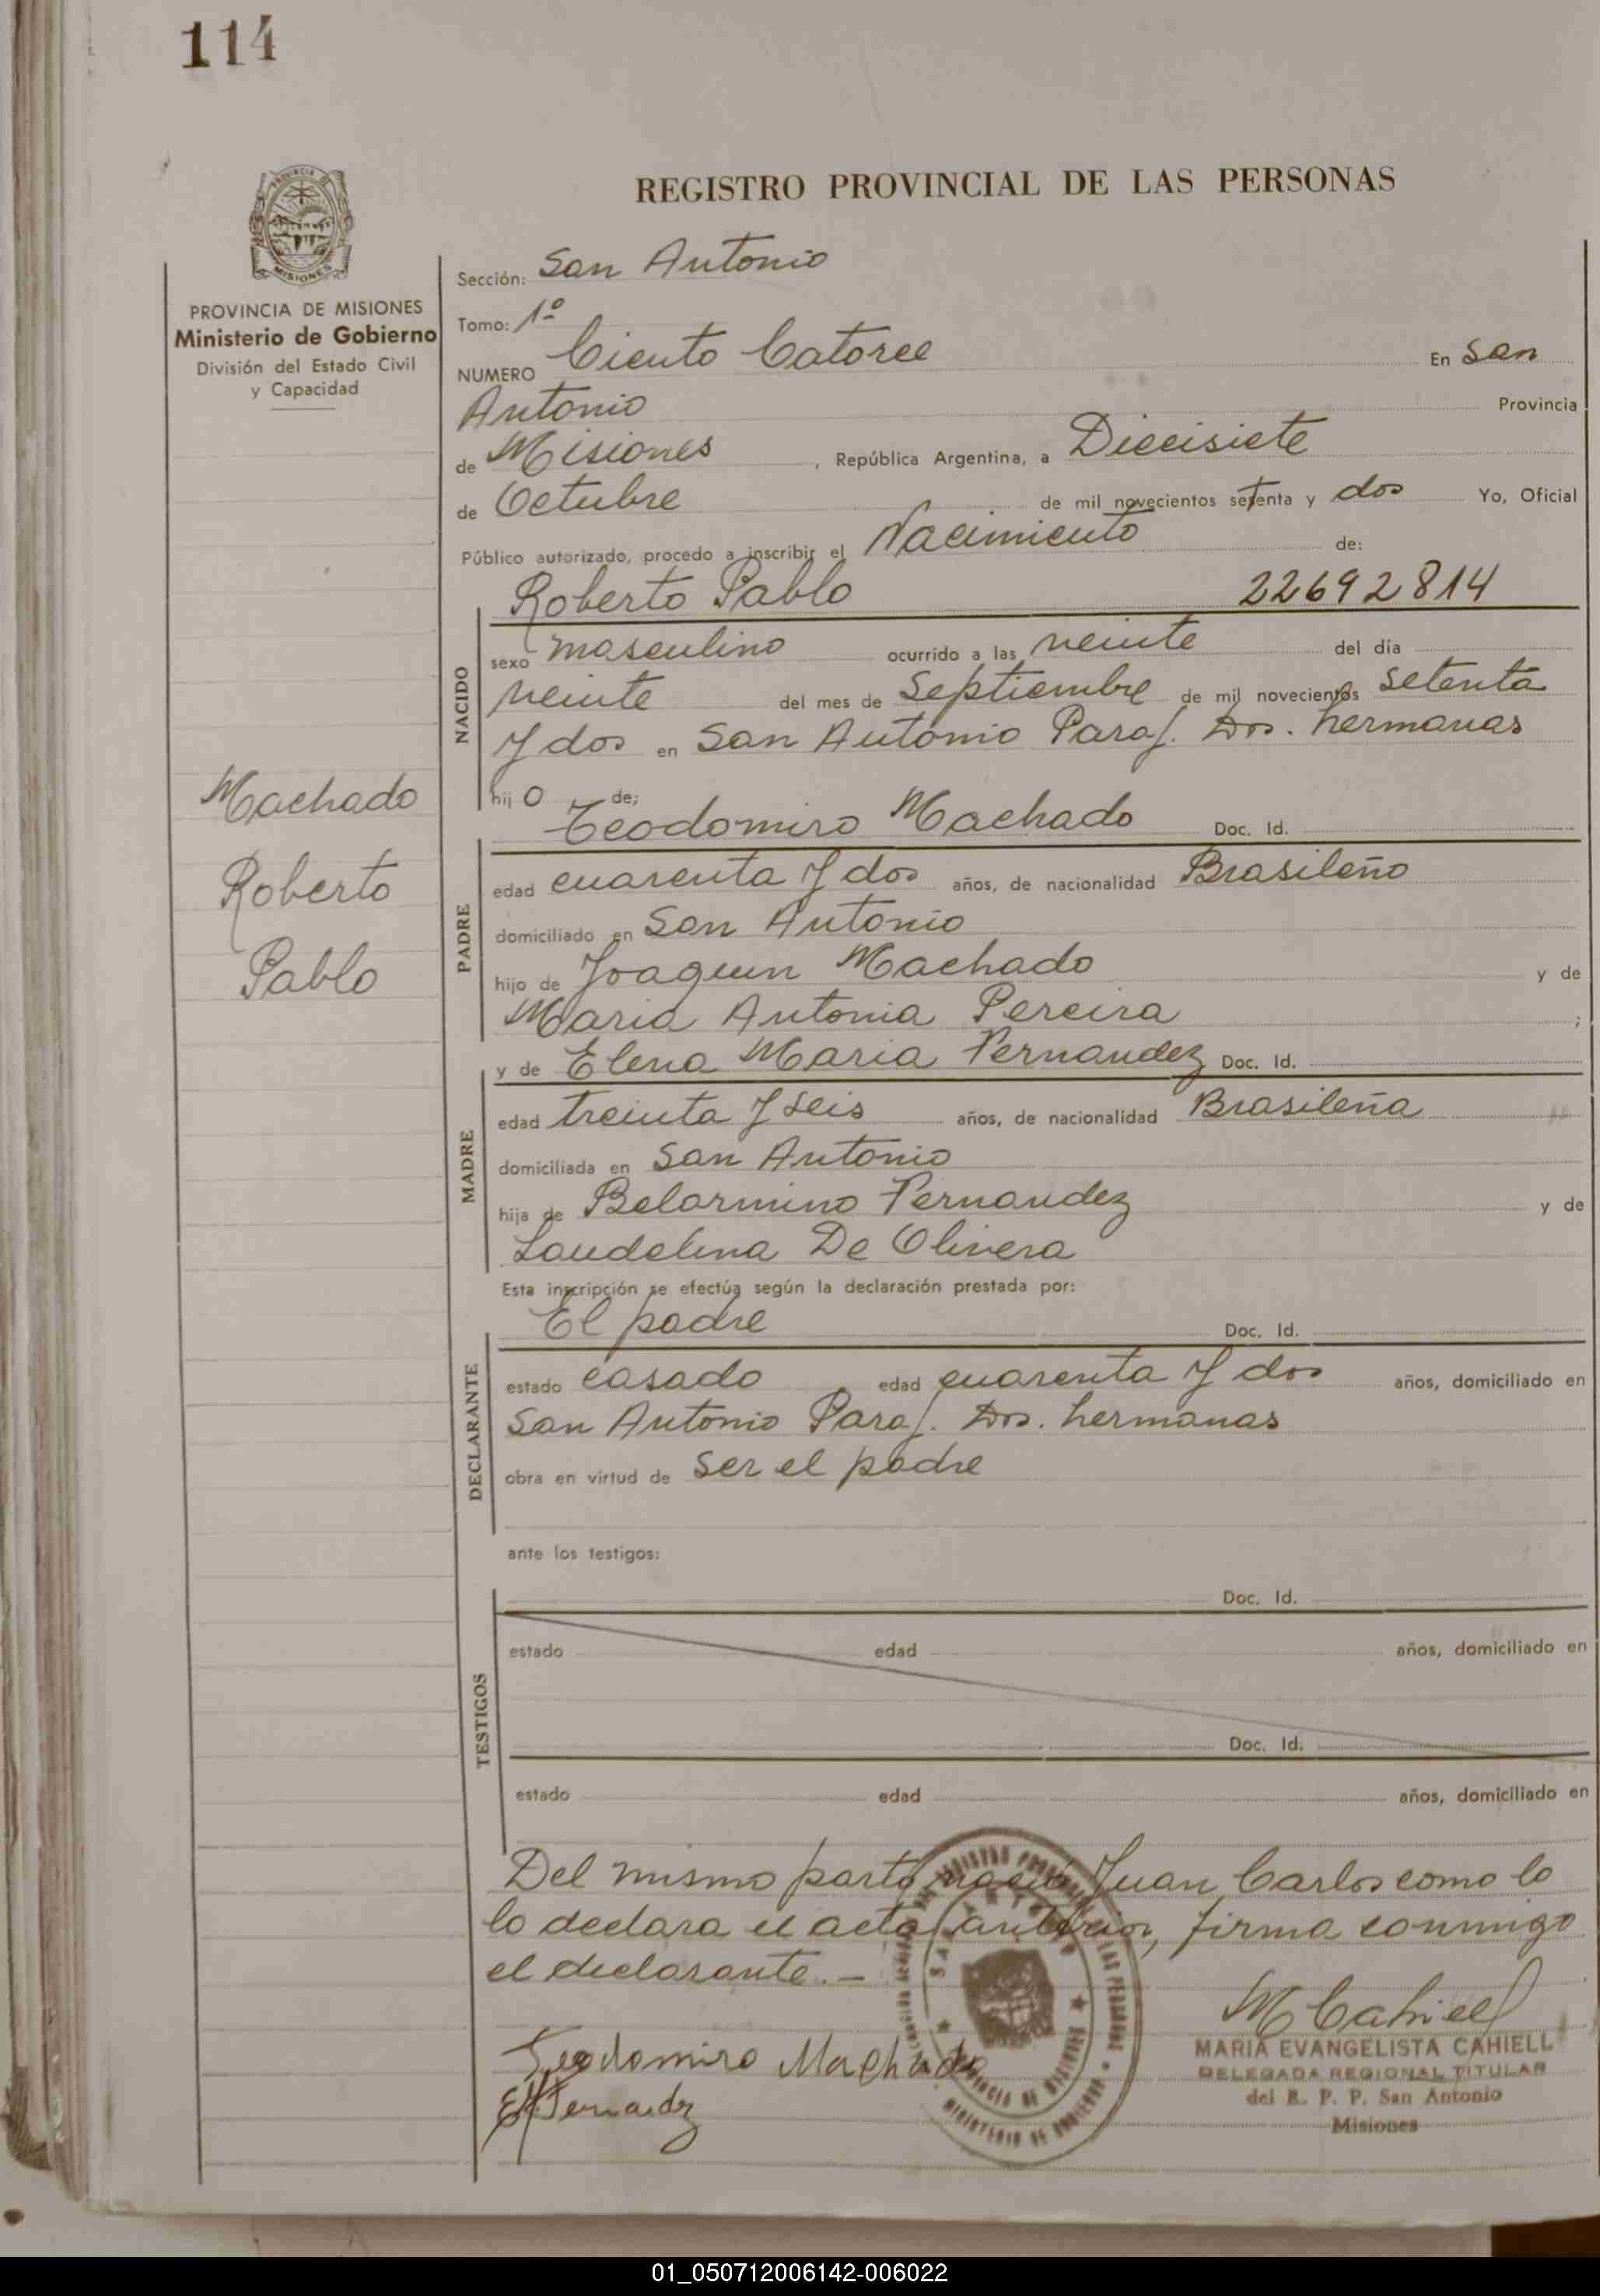 114
REGISTRO PROVINCIAL DE LAS PERSONAS
MISIONES
PROVINCIA DE MISIONES
Ministerio de Gobierno
División del Estado Civil
y Capacidad
Sección: San Antonio
Tomo: 1º
NUMERO Ciento Catorce En San
Antonio Provincia
de Misiones, República Argentina, a Diecisiete
de Octubre de mil novecientos setenta y dos Yo, Oficial
Público autorizado, procedo a inscribir el Nacimiento de:
Roberto Pablo 22692814
NACIDO
sexo masculino ocurrido a las veinte del día
veinte del mes de Septiembre de mil novecientos setenta
y dos en San Antonio Paraj. Dos. hermanas
hijo de;
Machado
Roberto
Pablo
Teodomiro Machado Doc. Id.
PADRE
edad cuarenta y dos años, de nacionalidad Brasileño
domiciliado en San Antonio
hijo de Joaquin Machado y de
Maria Antonia Pereira ;
y de Elena Maria Fernandez Doc. Id.
MADRE
edad treinta y seis años, de nacionalidad Brasileña
domiciliada en San Antonio
hija de Belarmino Fernandez y de
Laudelina De Olivera
Esta inscripción se efectúa según la declaración prestada por:
El padre Doc. Id.
DECLARANTE
estado casado edad cuarenta y dos años, domiciliado en
San Antonio Paraj. Dos. hermanas
obra en virtud de ser el padre
ante los testigos:
Doc. Id.
TESTIGOS
estado edad años, domiciliado en
Doc. Id.
estado edad años, domiciliado en
Del mismo parto nació Juan Carlos como lo
lo declara el acta anterior, firma conmigo
el declarante.-
Teodomiro Machado
M Cahiell
MARIA EVANGELISTA CAHIELL
DELEGADA REGIONAL TITULAR
del R. P. P. San Antonio
Misiones
01_050712006142-006022